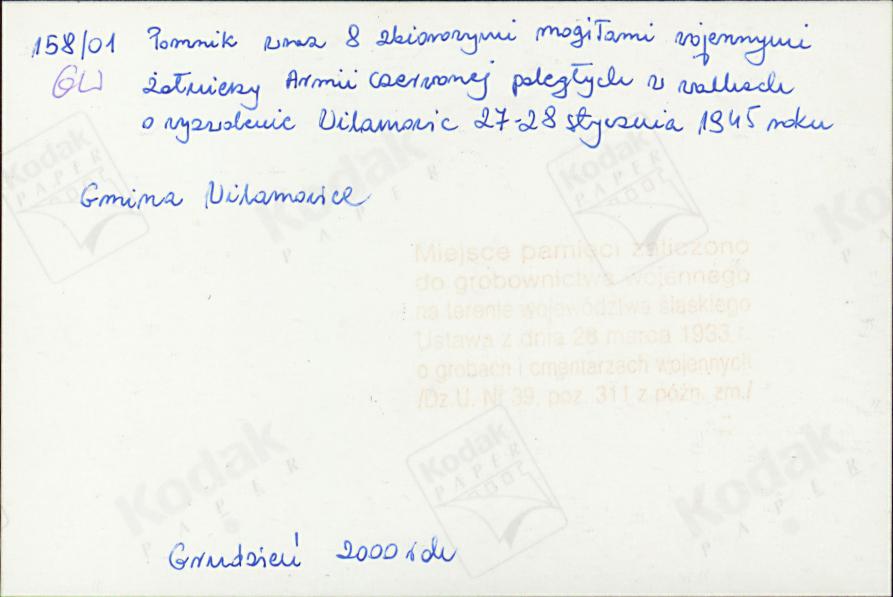 158/01 Pomnik wraz 8 zbiorowymi mogiłami wojennymi
GW żołnierzy Armii Czerwonej poległych w walkach
o wyzwolenie Wilamowic 27-28 stycznia 1945 roku
Gmina Wilamowice
Miejsce pamięci zaliczono
do grobownictwa wojennego
na terenie województwa śląskiego
Ustawa z dnia 28 marca 1933 r.
o grobach i cmentarzach wojennych
/Dz.U. Nr 39, poz. 311 z późn. zm./
Grudzień 2000 rok
Kodak
PAPER
Kodak
PAPER
Kodak
PAPER
Kodak
PAPER
Kodak
PAPER
Kodak
PAPER